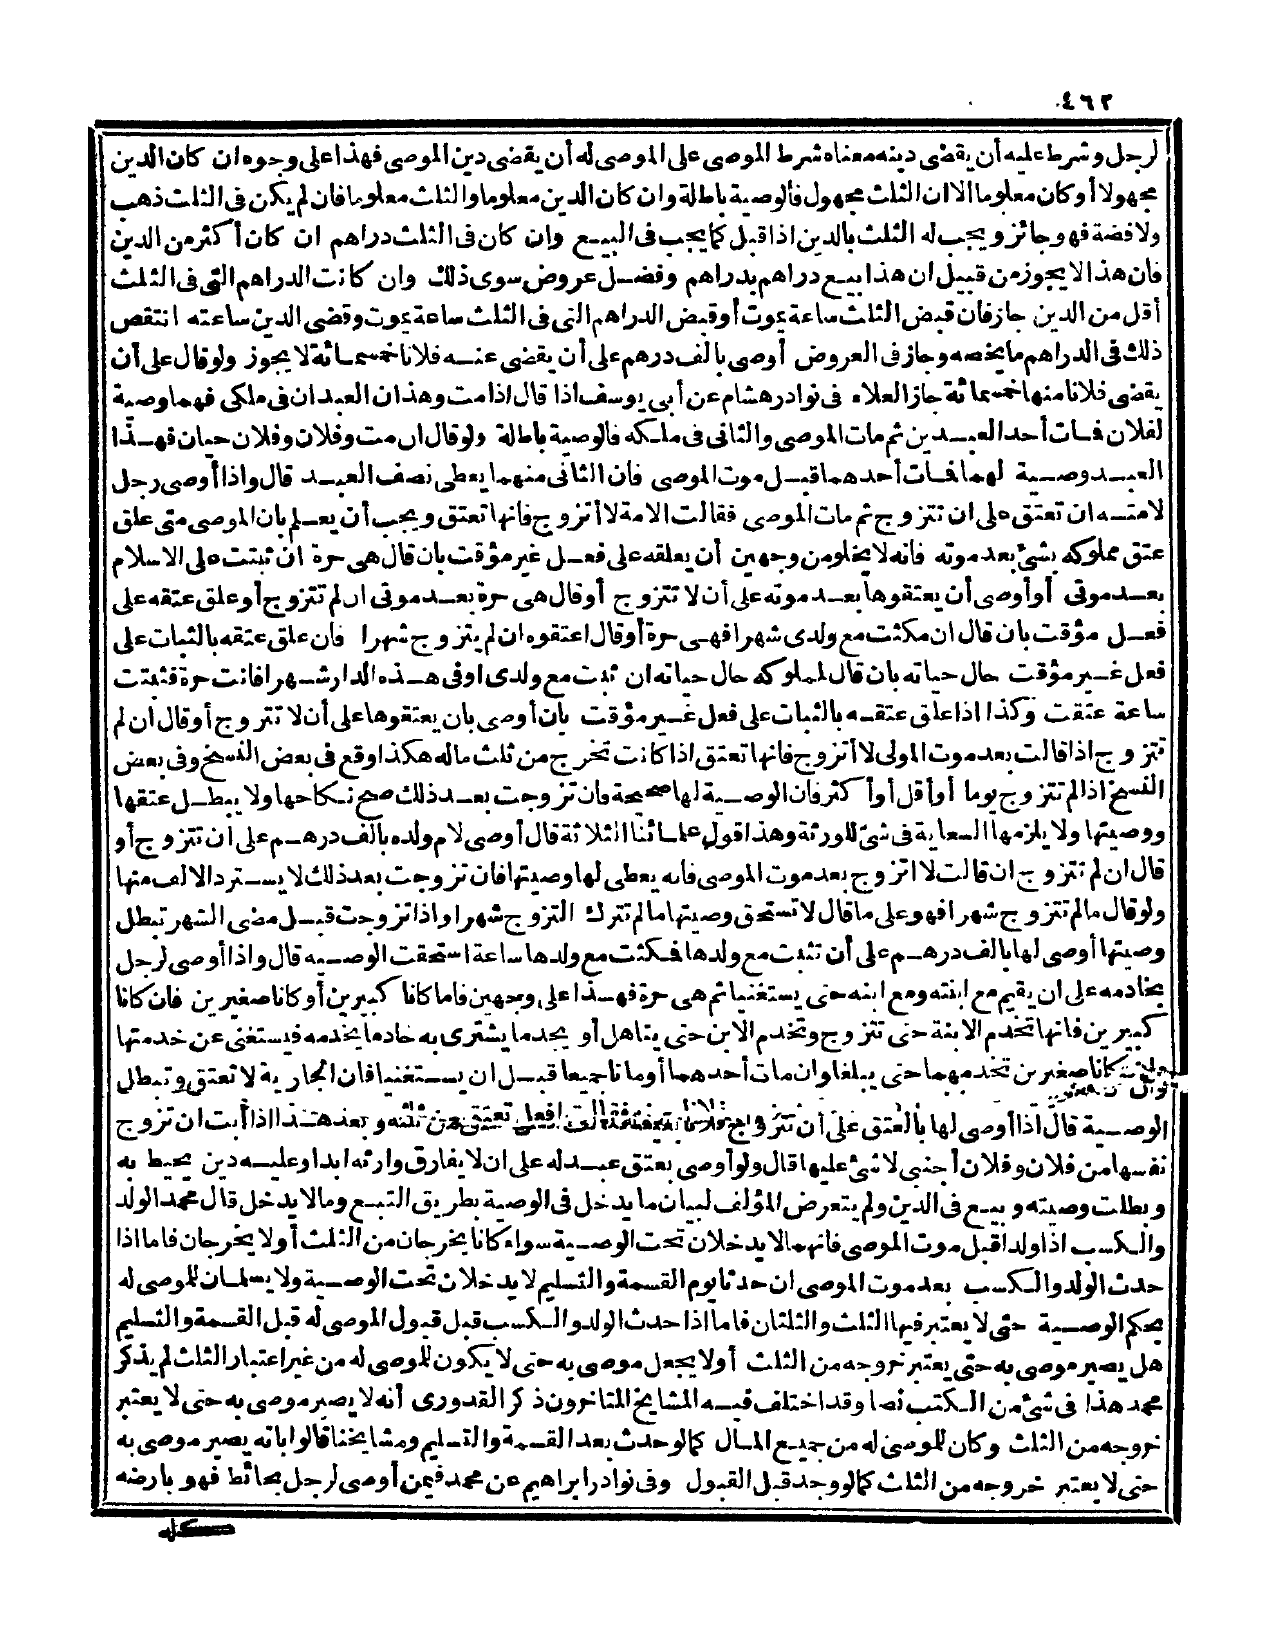 ٤٦٢
لرجل وشرط عليه أن يقضى دينه معناه شرط الموصى على الموصى له أن يقضى دين الموصى فهذا على وجوه ان كان الدين
مجهولا أو كان معلوما الا ان الثلث مجهول فالوصية باطلة وان كان الدين معلوما والثلث معلوما فان لم يكن فى الثلث ذهب
ولا فضة فهو جائز ويجب له الثلث بالدين اذا قبل كما يجب فى البيع وان كان فى الثلث دراهم ان كان أكثر من الدين
فان هذا لا يجوز من قبيل ان هذا بيع دراهم بدراهم وفضل عروض سوى ذلك وان كانت الدراهم التى فى الثلث
أقل من الدين جاز فان قبض الثلث ساعة يموت أو قبض الدراهم التى فى الثلث ساعة يموت وقضى الدين ساعته انتقص
ذلك فى الدراهم ما يخصه وجاز فى العروض أوصى بالف درهم على أن يقضى عنه فلانا خمسمائة لا يجوز ولو قال على أن
يقضى فلانا منها خمسمائة جاز العلاء فى نوادر هشام عن أبى يوسف اذا قال اذا مت وهذان العبدان فى ملكى فهما وصية
لفلان فمات أحد العبدين ثم مات الموصى والثانى فى ملكه فالوصية باطلة ولو قال ان مت وفلان وفلان حيان فهذا
العبد وصية لهما فمات أحدهما قبل موت الموصى فان الثانى منهما يعطى نصف العبد قال واذا أوصى رجل
لامته ان تعتق على ان تتزوج ثم مات الموصى فقالت الامة لا أتزوج فانها تعتق ويجب أن يعلم بان الموصى متى علق
عتق مملوكه بشئ بعد موته فانه لا يخلو من وجهين أن يعلقه على فعل غير مؤقت بان قال هى حرة ان ثبتت على الاسلام
بعد موتى أو أوصى أن يعتقوها بعد موته على أن لا تتزوج أو قال هى حرة بعد موتى ان لم تتزوج أو علق عتقه على
فعل مؤقت بان قال ان مكثت مع ولدى شهرا فهى حرة أو قال اعتقوه ان لم يتزوج شهرا فان علق عتقه بالثبات على
فعل غير مؤقت حال حياته بان قال لمملوكه حال حياته ان ثبت مع ولدى او فى هذه الدار شهرا فانت حرة فثبتت
ساعة عتقت وكذا اذا علق عتقه بالثبات على فعل غير مؤقت بان أوصى بان يعتقوها على أن لا تتزوج أو قال أن لم
تتزوج اذا قالت بعد موت المولى لا أتزوج فانها تعتق اذا كانت تخرج من ثلث ماله هكذا وقع فى بعض النسخ وفى بعض
النسخ اذا لم تتزوج يوما أو أقل أو أكثر فان الوصية لها صحيحة فان تزوجت بعد ذلك صح نكاحها ولا يبطل عتقها
ووصيتها ولا يلزمها السعاية فى شئ للورثة وهذا قول علمائنا الثلاثة قال أوصى لام ولده بالف درهم على ان تتزوج أو
قال ان لم تتزوج ان قالت لا أتزوج بعد موت الموصى فانه يعطى لها وصيتها فان تزوجت بعد ذلك لا يسترد الالف منها
ولو قال مالم تتزوج شهرا فهو على ما قال لا تستحق وصيتها مالم تترك التزوج شهرا واذا تزوجت قبل مضى الشهر تبطل
وصيتها أوصى لها بالف درهم على أن تثبت مع ولدها فمكثت مع ولدها ساعة استحقت الوصيه قال واذا أوصى لرجل
بخادمه على ان يقيم مع ابنته ومع ابنه حتى يستغنيا ثم هى حرة فهذا على وجهين فاما كانا كبيرين أو كانا صغيرين فان كانا
كبيرين فانها تخدم الابنة حتى تتزوج وتخدم الابن حتى يتاهل أو يجد ما يشترى به خادما يخدمه فيستغنى عن خدمتها
وان كانا صغيرين تخدمهما حتى يبلغا وان مات أحدهما أو ماتا جميعا قبل ان يستغنيا فان الجارية لا تعتق وتبطل
الوصية قال اذا أوصى لها بالعتق على أن تتزوج فلانا فقالت افعل تعتق من ثلثه وبعد هذا اذا أبت ان تزوج
نفسها من فلان وفلان أجنبى لا شئ عليها قال ولو أوصى بعتق عبد له على ان لا يفارق وارثه ابدا وعليه دين يحيط به
وبطلت وصيته وبيع فى الدين ولم يتعرض المؤلف لبيان ما يدخل فى الوصية بطريق التبع وما لا يدخل قال محمد الولد
والكسب اذا ولدا قبل موت الموصى فانهما لا يدخلان تحت الوصية سواء كانا يخرجان من الثلث أو لا يخرجان فاما اذا
حدث الولد والكسب بعد موت الموصى ان حدثا يوم القسمة والتسليم لا يدخلان تحت الوصية ولا يسلمان للموصى له
بحكم الوصية حتى لا يعتبر فيها الثلث والثلثان فاما اذا حدث الولد والكسب قبل قبول الموصى له قبل القسمة والتسليم
هل يصير موصى به حتى يعتبر خروجه من الثلث أو لا يجعل موصى به حتى لا يكون للموصى له من غير اعتبار الثلث لم يذكر
محمد هذا فى شئ من الكتب نصا وقد اختلف فيه المشايخ المتاخرون ذكر القدورى أنه لا يصير موصى به حتى لا يعتبر
خروجه من الثلث وكان للموصى له من جميع المال كما لو حدث بعد القسمة والتسليم ومشايخنا قالوا بانه يصير موصى به
حتى لا يعتبر خروجه من الثلث كما لو وجد قبل القبول وفى نوادر ابراهيم عن محمد فيمن أوصى لرجل بحائط فهو بارضه